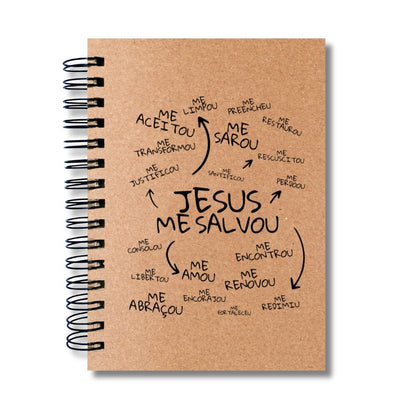 ME LIMPOU
ME ACEITOU
ME PREENCHEU
ME RESTAUROU
ME SAROU
ME TRANSFORMOU
ME RESCUSCITOU
ME JUSTIFICOU
ME SANTIFICOU
ME PERDOOU
JESUS
ME SALVOU
ME CONSOLOU
ME ENCONTROU
ME LIBERTOU
ME AMOU
ME RENOVOU
ME ABRAÇOU
ME ENCORAJOU
ME REDIMIU
ME FORTALECEU